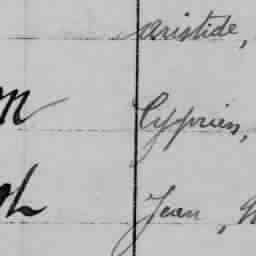 Aristide,
Cyprien,
Jean,